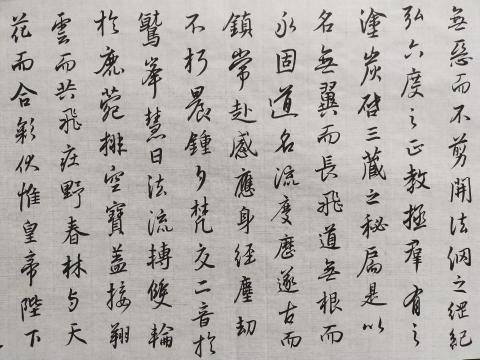 無惡而不剪開法網之綱紀
弘六度之正教拯羣有之
塗炭啓三藏之秘扃是以
名無翼而長飛道無根而
永固道名流慶歷遂古而
鎮常赴感應身經塵劫
不朽晨鍾夕梵交二音於
鷲峯慧日法流轉雙輪
於鹿菀排空寶蓋接翔
雲而共飛庄野春林与天
花而合彩伏惟皇帝陛下